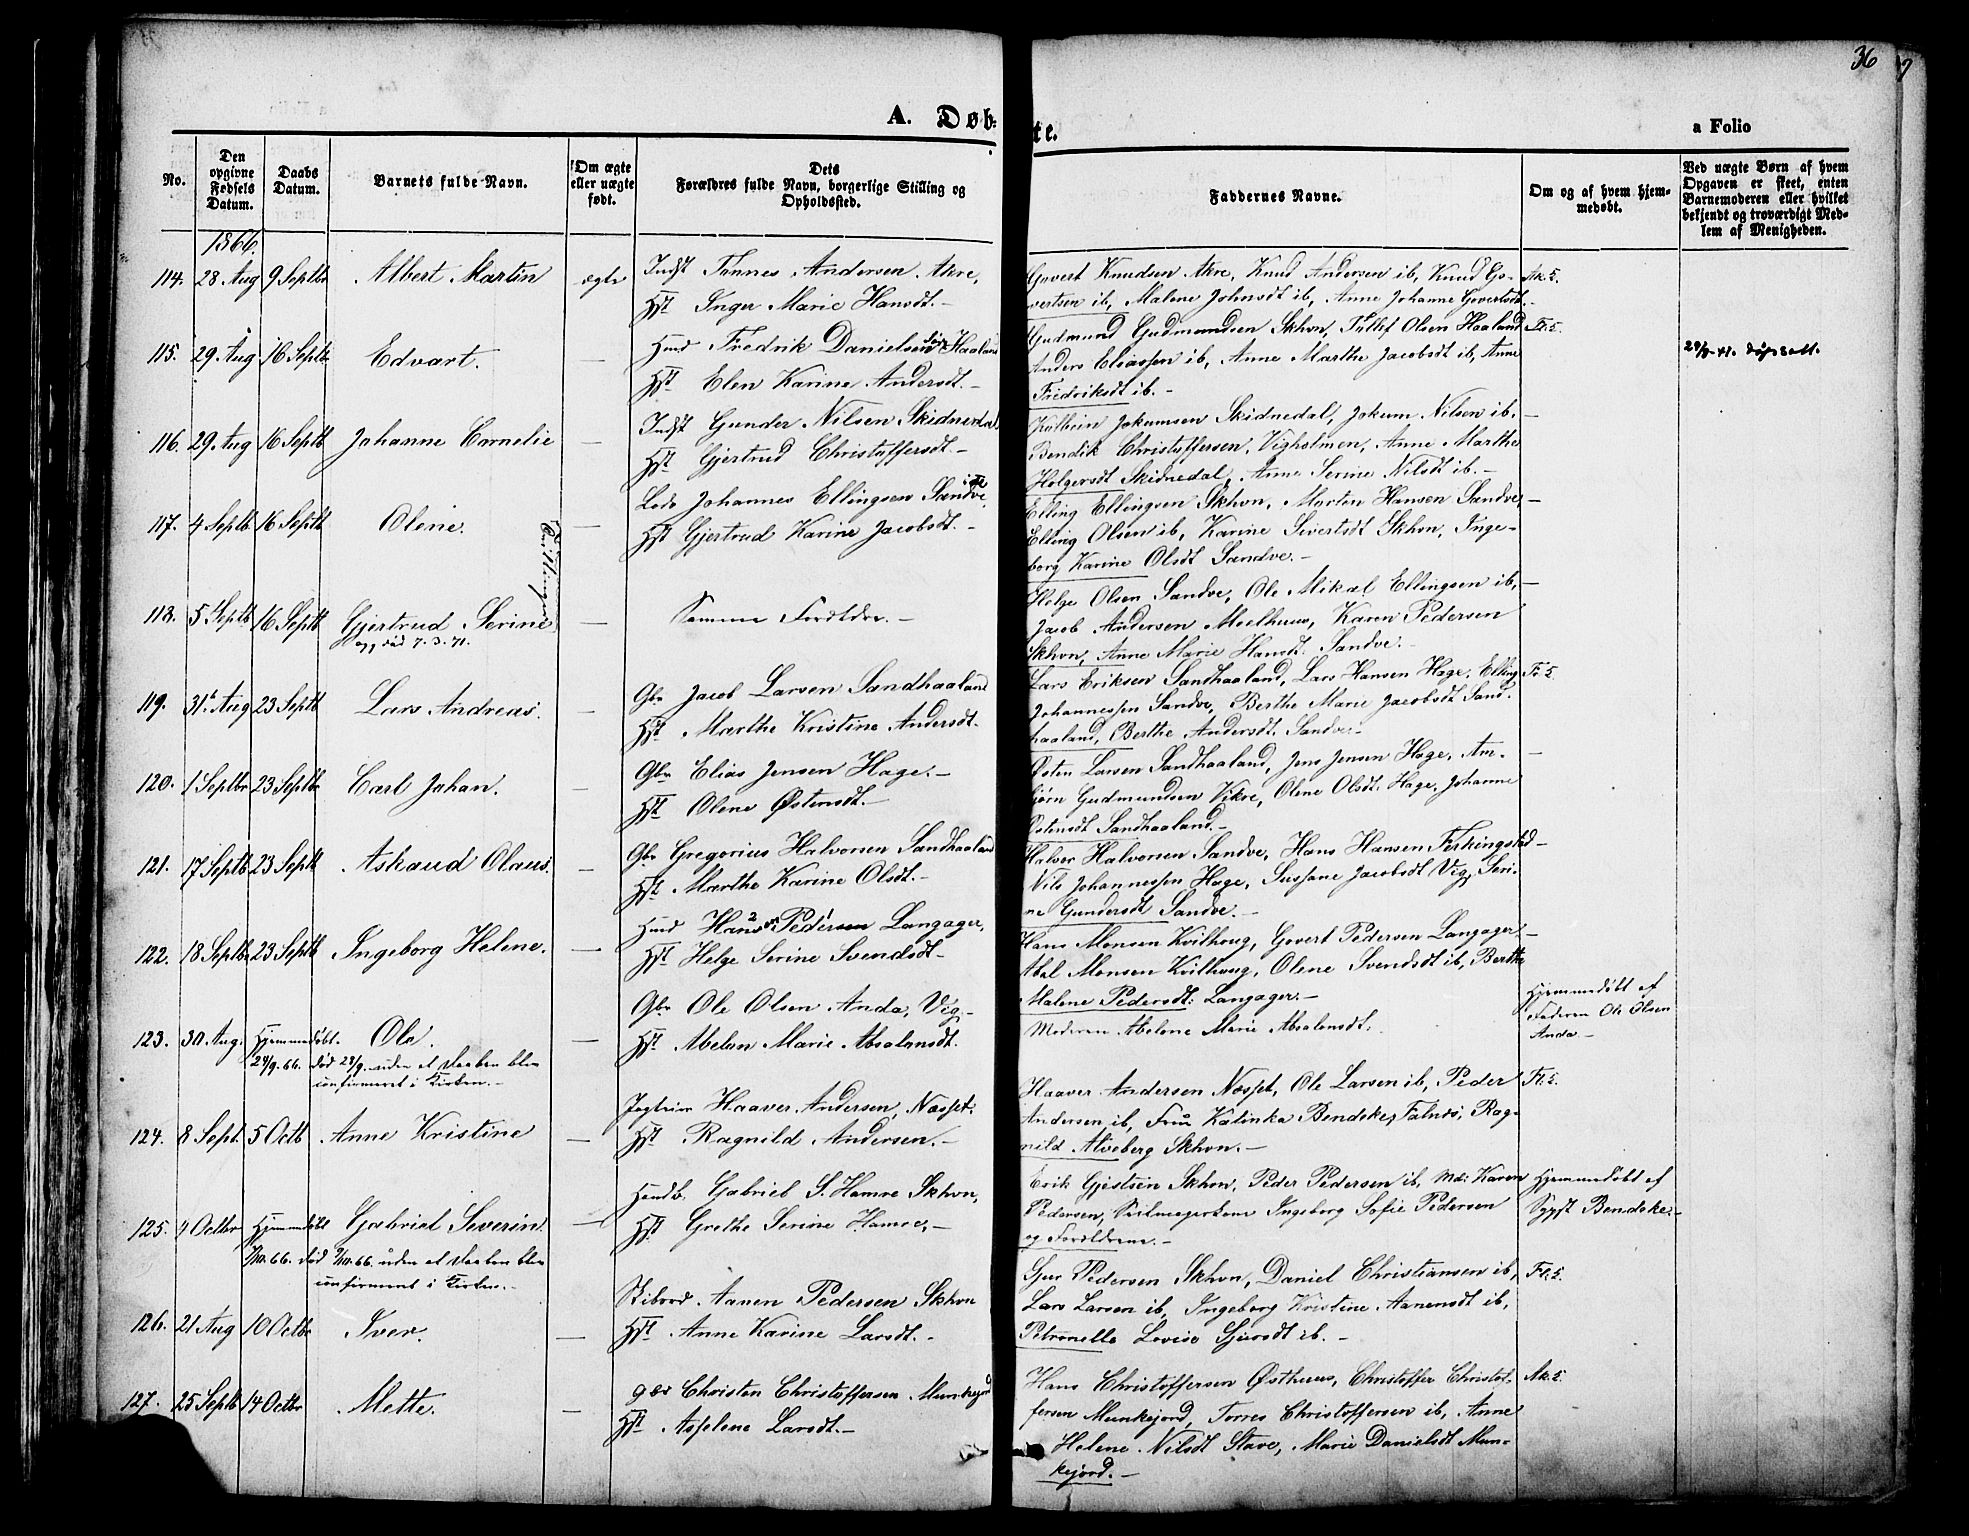 36
A. Døbte.
a Folio
No.
Den opgivne Fødsels Datum.
Daabs Datum.
Barnets fulde Navn.
Om ægte eller uægte født.
Dets Forældres fulde Navn, borgerlige Stilling og Opholdssted.
Faddernes Navne.
Om og af hvem hjemmedøbt.
Ved uægte Børn af hvem Opgaven er skeet, enten Barnemoderen eller hvilket bekjendt og troværdigt Medlem af Menigheden.
1866.
114. 28 Aug 9 Septbr Albert Martin ægte Indst Tønnes Andersen Akre,
Hst Inger Marie Hansdt. -
Govert Knudsen Akre, Knud Andersen ib, Knud Go- Ak. K.
vertsen ib, Malene Johnsdt ib, Anne Johanne Govertsdt. -
115. 29 Aug 16 Septbr Edvart. - Hmd Fredrik Danielsen Haaland
Hst Elen Karine Andersdt. -
Gudmund Gudmundsen Skhvn, Tollef Olsen Haaland
Anders Eliassen ib, Anne Marthe Jacobsdt ib, Anne
Fredriksdt ib. -
døpsatt.
116. 29 Aug 16 Septb Johanne Cornelie - Indst Gunder Nilsen Skidnedal
Hst Gjertrud Christoffersdt. -
Kolbein Jokumsen Skidnedal, Jokum Nilsen ib. -
Bendik Christoffersen, Vigholmen, Anne Marthe
Holgersdt Skidnedal, Anne Serine Nilsdt ib. -
117. 4 Septb 16 Septb Olene. - Lods Johannes Ellingsen Sandve
Hst Gjertrud Karine Jacobsdt. -
Elling Ellingsen Skhvn, Morten Hansen Sandve, -
Elling Olsen ib, Karine Sivertsdt Skhvn, Inge-
borg Karine Olsdt Sandve. -
118. 5 Septb 16 Septb Gjertrud Serine - Samme Foreldre. -
død 7.3.71.
Tvillinger
Helge Olsen Sandve, Ole Mikal Ellingsen ib, -
Jacob Andersen Moelhuus, Karen Pedersen
Skhvn, Anne Marie Hansdt. Sandve. -
119. 31 Aug 23 Septb Lars Andreas. - Gbr Jacob Larsen Sandhaaland
Hst Marthe Kristine Andersdt. -
Lars Eriksen Sandhaaland, Lars Hansen Hage, Elling
Johannessen Sandve, Berthe Marie Jacobsdt Sand-
haaland, Berthe Andersdt. Sandve. -
120. 1 Septbr 23 Septbr Carl Johan. - Gbr Elias Jensen Hage. -
Hst Olene Østensdt. -
Østen Larsen Sandhaaland, Jens Jensen Hage, Am- -
bjørn Gudmundsen Vikre, Olene Olsdt. Hage, Johanne
Østensdt Sandhaaland. -
121. 17 Septb 23 Septb Askaud Olaus. - Gbr Gregorius Halvorsen Sandhaaland
Hst Marthe Karine Olsdt. -
Halvor Halvorsen Sandve, Hans Hansen Ferkingstad -
Nils Johannessen Hage, Sussane Jacobsdt Vig, Seri-
ne Gundersdt Sandve. -
122. 18 Septb 23 Septb Ingeborg Helene. - Hmd Hans Pedersen Langager,
Hst Helge Serine Svendsdt -
Hans Monsen Kvilhoug, Govert Pedersen Langager -
Abel Monsen Kvilhoug, Olene Svendsdt ib, Berthe
Malene Pedersdt. Langager. -
123. 30 Aug. Hjemmedøbt. Ole. - Gbr Ole Olsen Anda, Vig. -
28/9.66. død 28/9. uden at Daaben blev
confirmeret i Kirken. -
Hst Abelen Marie Absalonsdt.
Moderen Abelene Marie Absalonsdt.
Hjemmedøbt af
Faderen Ole Olsen
Anda -
124. 8 Sept. 5 Octb Anne Kristine - Haaver Andersen, Nesset.
Hst Ragnild Andersen. -
Haaver Andersen Nesset, Ole Larsen ib, Peder
Andersen ib, Frue Katinka Bendeke, Falnæs, Rag-
nild Alveberg Skhvn. -
125. 4 Octbr Hjemmedøbt Gabriel Severin - Hendb. Gabriel S. Hamre Skhvn,
død 66. uden at Daaben blev
confirmeret i Kirken. -
Hst Grethe Serine Hamre, -
Erik Gjestsen Skhvn, Peder Pedersen ib, Md: Karen
Pedersen, Ingeborg Sofie Pedersen
og Forældrene. -
Hjemmedøbt af
Sgpst Bendeke. -
126. 21 Aug 10 Octbr Iver. - Aanen Pedersen Skhvn
Hst Anne Karine Larsdt. -
Sjur Pedersen Skhvn, Daniel Christiansen ib,
Lars Larsen ib, Ingeborg Kristine Aanensdt ib,
Petronelle Lovise Sjursdt ib. -
127. 25 Septb 14 Octbr Mette. - Christen Christoffersen Munkejord
Hst Asselene Larsdt. -
Hans Christoffersen Østhuus, Christoffer Christof-
fersen Munkejord, Torres Christoffersen ib, Anne
Helene Nilsdt Stave, Marie Danielsdt Mun-
kejord. -